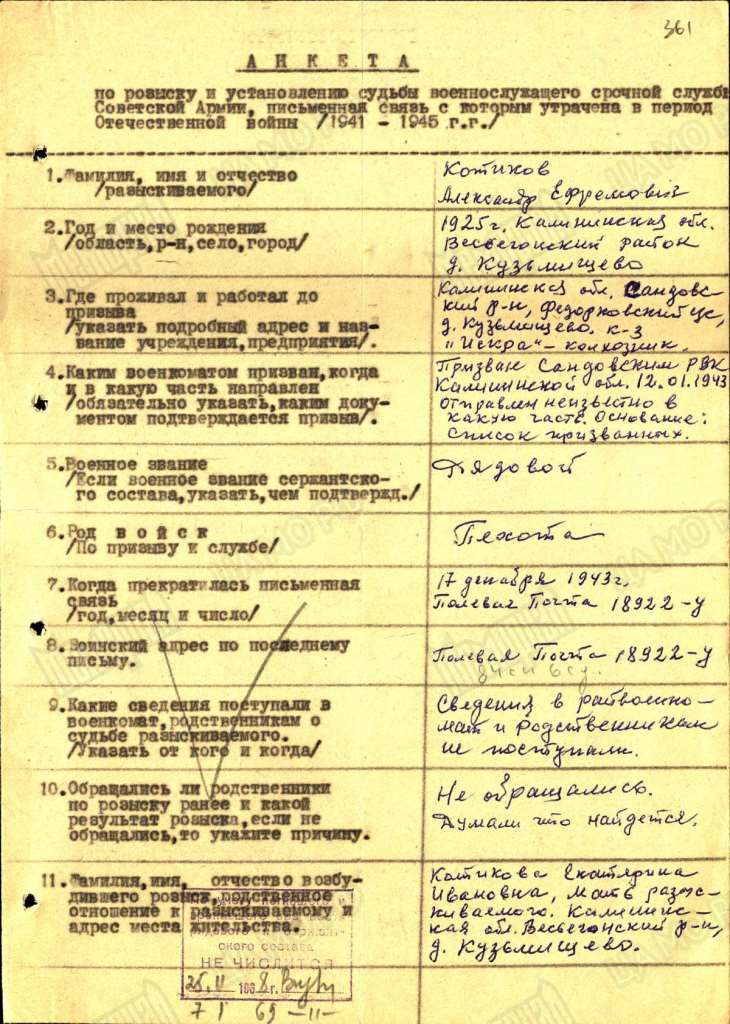 361
АНКЕТА
по розыску и установлению судьбы военнослужащего срочной служб
Советской Армии, письменная связь с которым утрачена в период
Отечественной войны /1941 - 1945 г.г./
1. Фамилия, имя и отчество
/разыскиваемого/
Котиков
Александр Ефремович
2. Год и место рождения
/область, р-н, село, город/
1925г. Калининская обл.
Весьегонский район
д. Кузьмищево
3. Где проживал и работал до
призыва
/указать подробный адрес и наз-
вание учреждения, предприятия/.
Калининская обл. Сандовс-
кий р-н, Федорковский с/с,
д. Кузьмищево. к-з
"Искра" - колхозник.
4. Каким военкоматом призван, когда
и в какую часть направлен
/обязательно указать, каким доку-
ментом подтверждается призыв/.
Призван Сандовским РВК
Калининской обл. 12.01.1943
Отправлен неизвестно в
какую часть. Основание:
список призванных.
5. Военное звание
/Если военное звание сержантско-
го состава, указать, чем подтвержд./
Рядовой
6. Род войск
/По призыву и службе/
Пехота
7. Когда прекратилась письменная
связь
/год, месяц и число/
17 декабря 1943г.
Полевая Почта 18922-у
8. Воинский адрес по последнему
письму.
Полевая Почта 18922-у
9. Какие сведения поступали в
военкомат, родственникам о
судьбе разыскиваемого.
/Указать от кого и когда/
Сведения в райвоенко-
мат и родственникам
не поступали.
10. Обращались ли родственники
по розыску ранее и какой
результат розыска, если не
обращались, то укажите причину.
Не обращались.
Думали что найдется.
11. Фамилия, имя, отчество возбу-
дившего розыск, родственное
отношение к разыскиваемому и
адрес места жительства.
Котикова Екатярина
Ивановна, мать разыс-
киваемого. Калининс-
кая обл. Весьегонский р-н,
д. Кузьмищево.
ского состава
НЕ ЧИСЛИТСЯ
25, II 1968г.
7 I 69 -11-